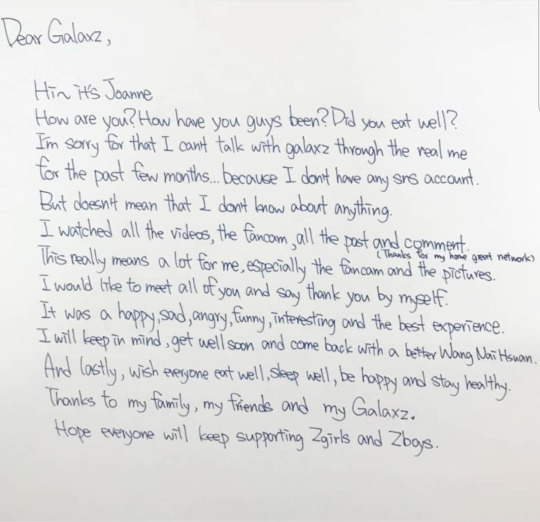 Dear Galaxz,
Hi~ it's Joanne
How are you? How have you guys been? Did you eat well?
I'm sorry for that I can't talk with galaxz through the real me
for the past few months... because I don't have any sns account.
But doesn't mean that I don't know about anything.
I watched all the videos, the fancam, all the post and comment.
(Thanks for my home great network)
This really means a lot for me, especially the fancam and the pictures.
I would like to meet all of you and say thank you by myself.
It was a happy, sad, angry, funny, interesting and the best experience.
I will keep in mind, get well soon and come back with a better Wang Nai Hsuan.
And lastly, wish everyone eat well, sleep well, be happy and stay healthy.
Thanks to my family, my friends and my Galaxz.
Hope everyone will keep supporting Zgirls and Zboys.